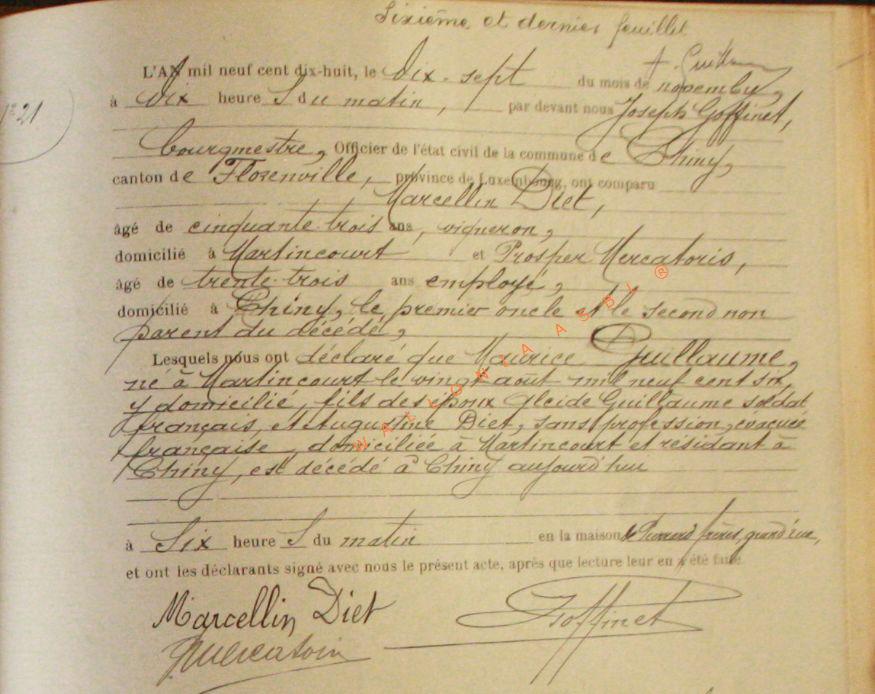 Sixième et dernier feuillet
+ Guillaume
N° 21
L'AN mil neuf cent dix-huit, le dix-sept du mois de novembre,
à dix heure s du matin, par devant nous Joseph Goffinet,
bourgmestre, Officier de l'état civil de la commune de Chiny,
canton de Florenville, province de Luxembourg, ont comparu
Marcellin Diet,
âgé de cinquante trois ans, vigneron,
domicilié à Martincourt et Prosper Mercatoris,
âgé de trente-trois ans employé,
domicilié à Chiny, le premier oncle et le second non
parent du décédé,
Lesquels nous ont déclaré que Maurice Guillaume,
né à Martincourt le vingt août mil neuf cent six,
y domicilié, fils des époux Alcide Guillaume soldat
français, et Augustine Diet, sans profession, évacuée
française, domiciliée à Martincourt et résidant à
Chiny, est décédé à Chiny aujourd'hui
à six heure s du matin en la maison frères, grand'rue,
et ont les déclarants signé avec nous le présent acte, après que lecture leur en a été faite.
Marcellin Diet
Goffinet
PMercatoris
WALLONIA ASBL ®